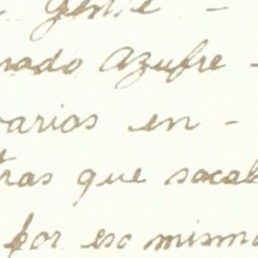 gente -
nado Azufre -
varios en -
tras que sacab
por eso mismo